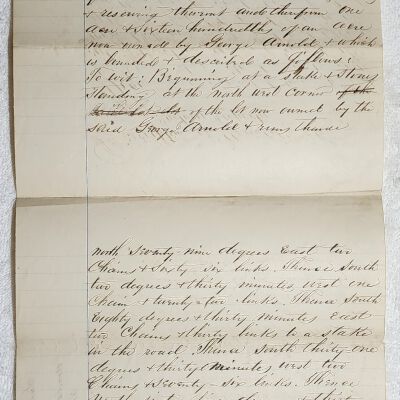 & reserving thereout and therefrom one
acre & sixteen hundredths of an acre
now owned by George Arnold & which
is bounded & described as follows:
To wit: Beginning at a stake & Stones
Standing at the north west corner of the
of the lot now owned by the
said George Arnold & runs thence
north Seventy-nine degrees East two
Chains & Sixty six links. Thence South
two degrees & thirty minutes west one
Chain & twenty-four links. Thence South
Eighty degrees & thirty minutes East
two Chains & thirty links to a stake
in the road. Thence South thirty-one
degrees & thirty minutes west two
Chains & Seventy-six links. Thence